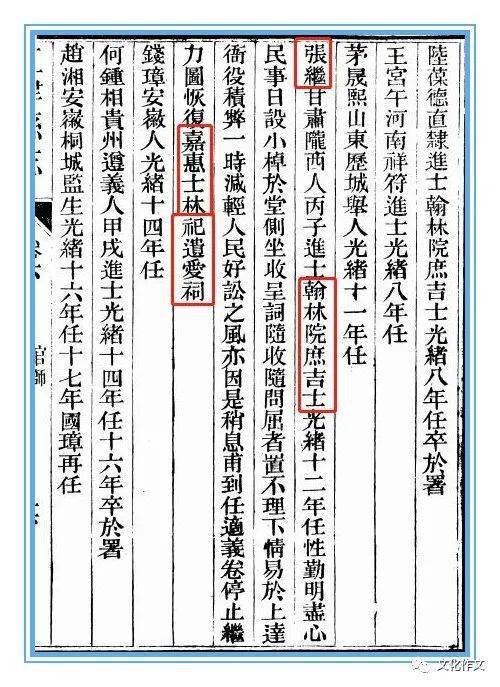 陸葆德直隸進士翰林院庶吉士光緒八年任卒於署
王宮午河南祥符進士光緒八年任
茅晟熙山東歷城舉人光緒十一年任
張繼甘肅隴西人丙子進士翰林院庶吉士光緒十二年任性勤明盡心
民事日設小棹於堂側坐收呈詞隨收隨問屈者置不理下情易於上達
衙役積弊一時減輕人民好訟之風亦因是稍息甫到任適義卷停止繼
力圖恢復嘉惠士林祀遺愛祠
錢璋安嶶人光緒十四年任
何鍾相貴州遵義人甲戌進士光緒十四年任十六年卒於署
趙湘安嶶桐城監生光緒十六年任十七年國璋再任
文化作文